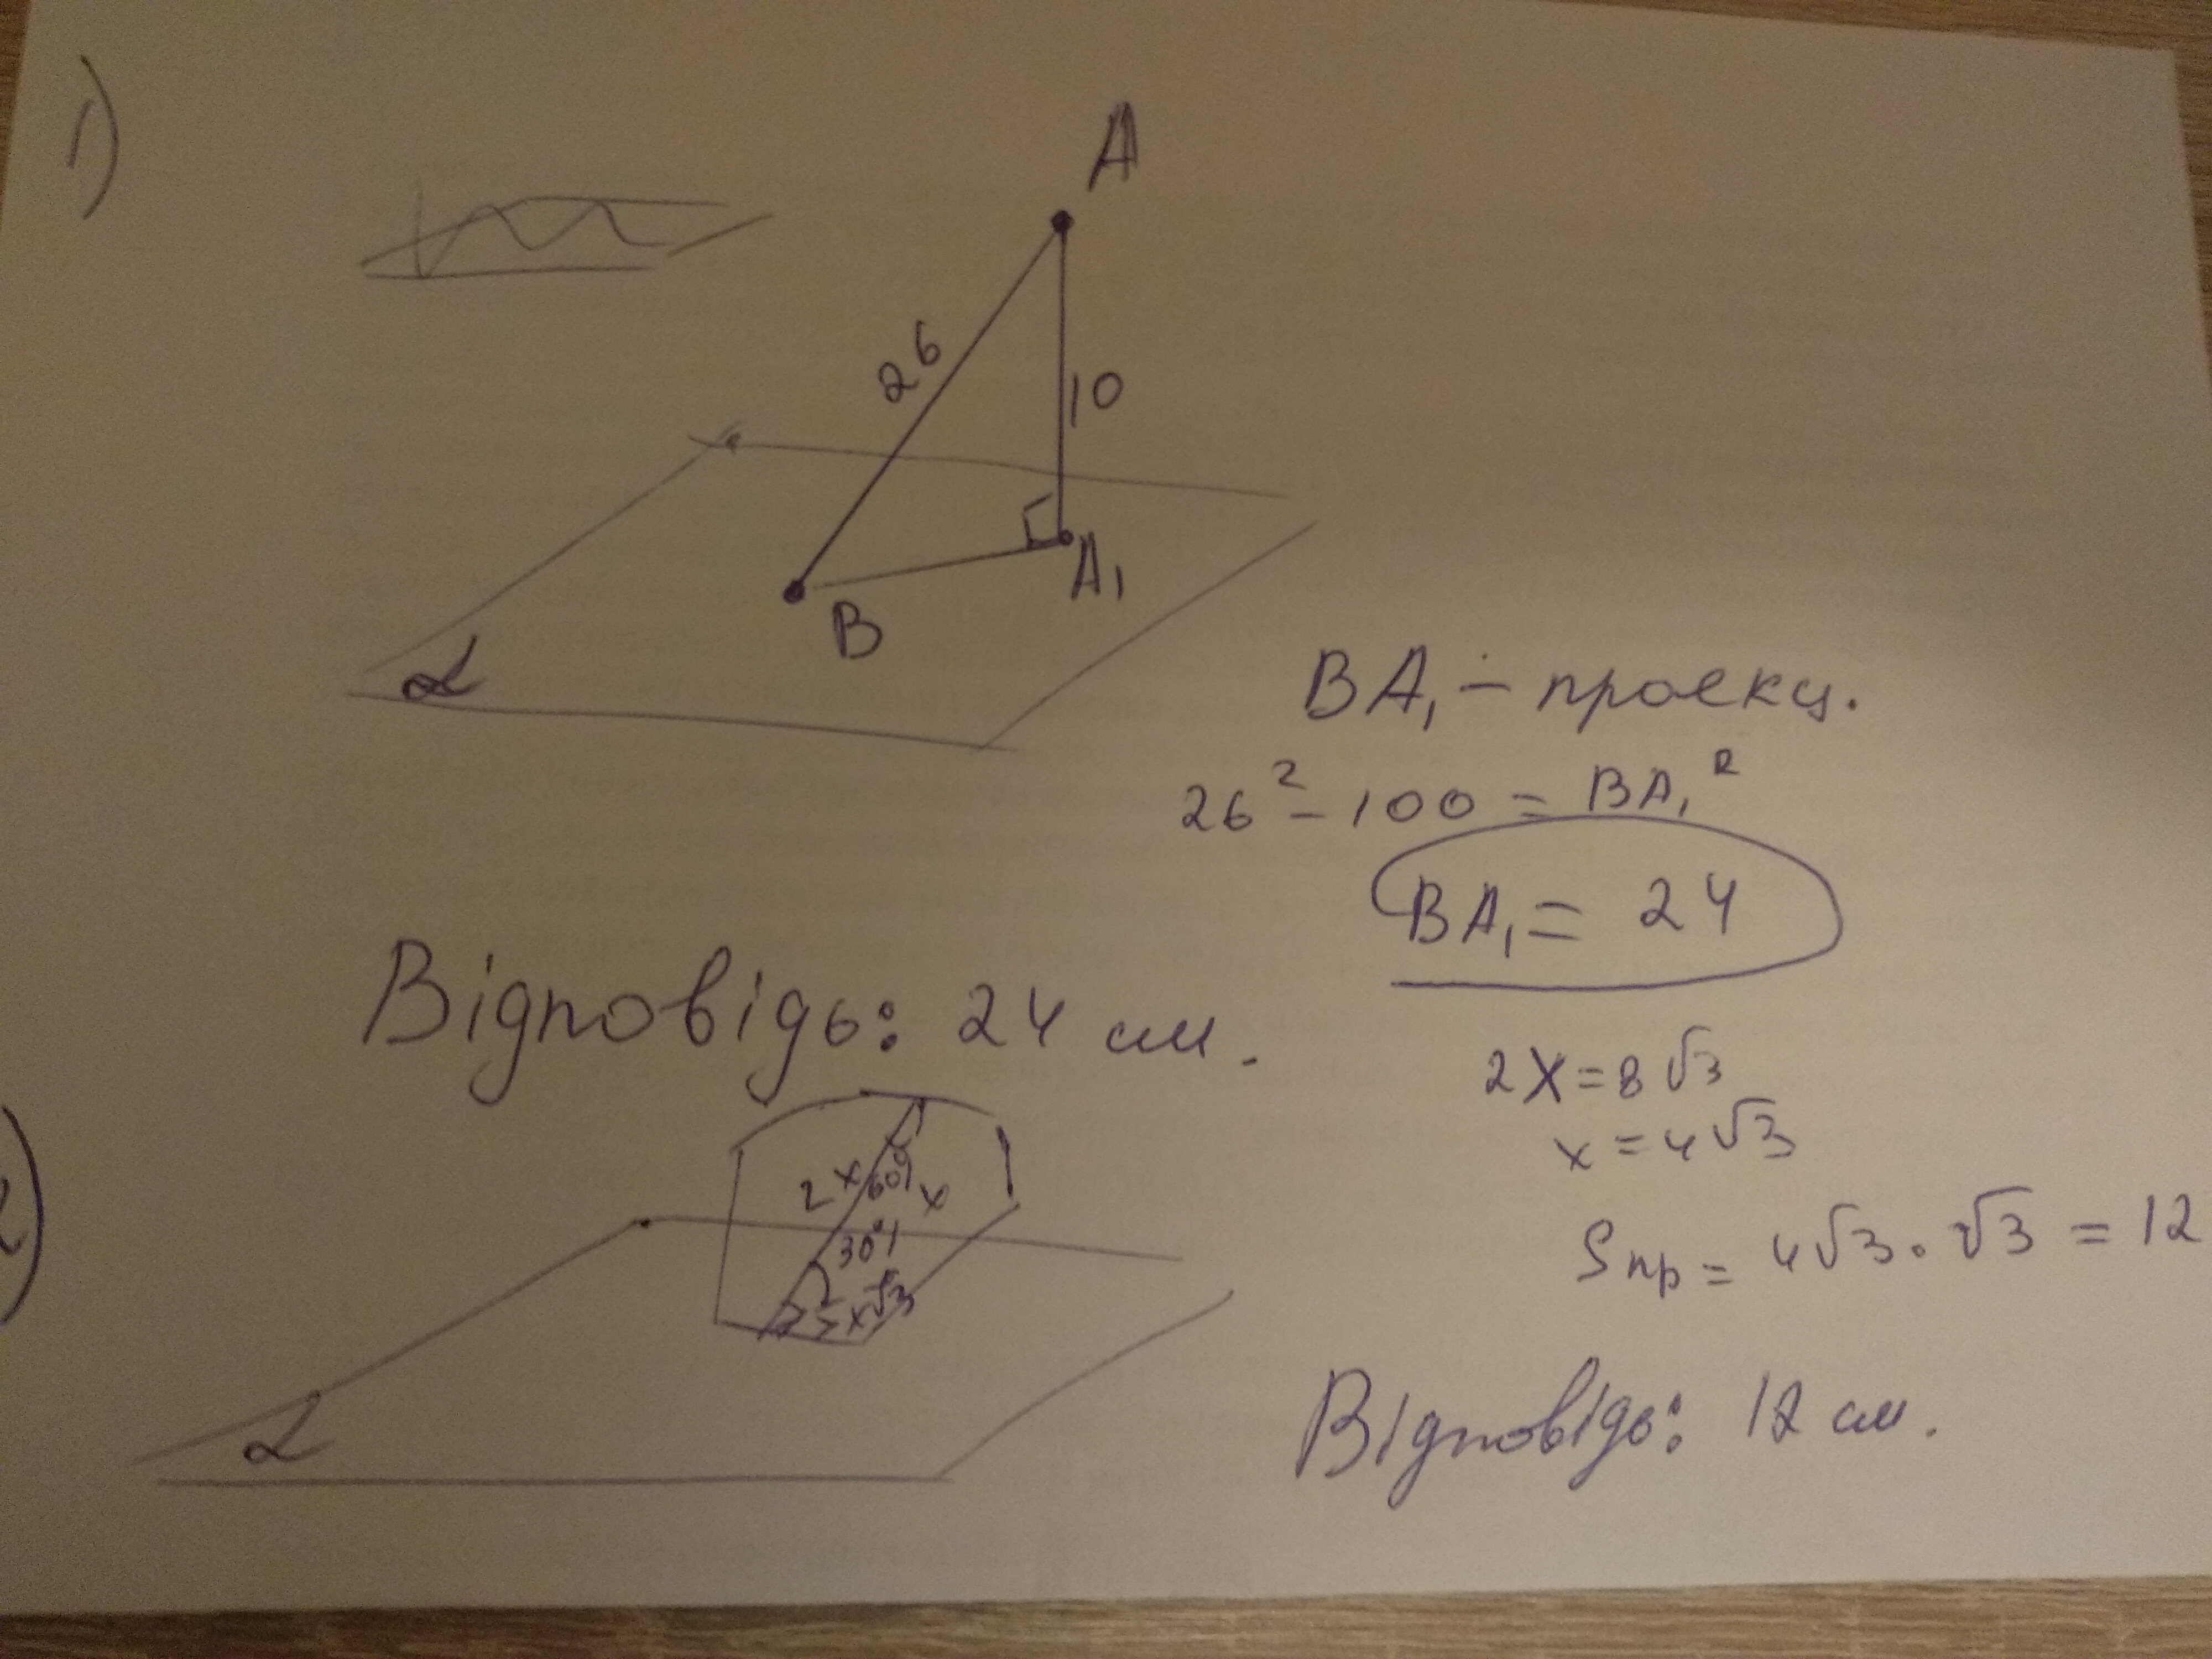 1)
A
26
10
A₁
B
α
BA₁ – проекц.
26² - 100 = BA₁²
BA₁ = 24
Відповідь: 24 см.
2x = 8√3
x = 4√3
2x 60° x
30°
x√3
Sпр = 4√3 · √3 = 12
α
Відповідь: 12 см.